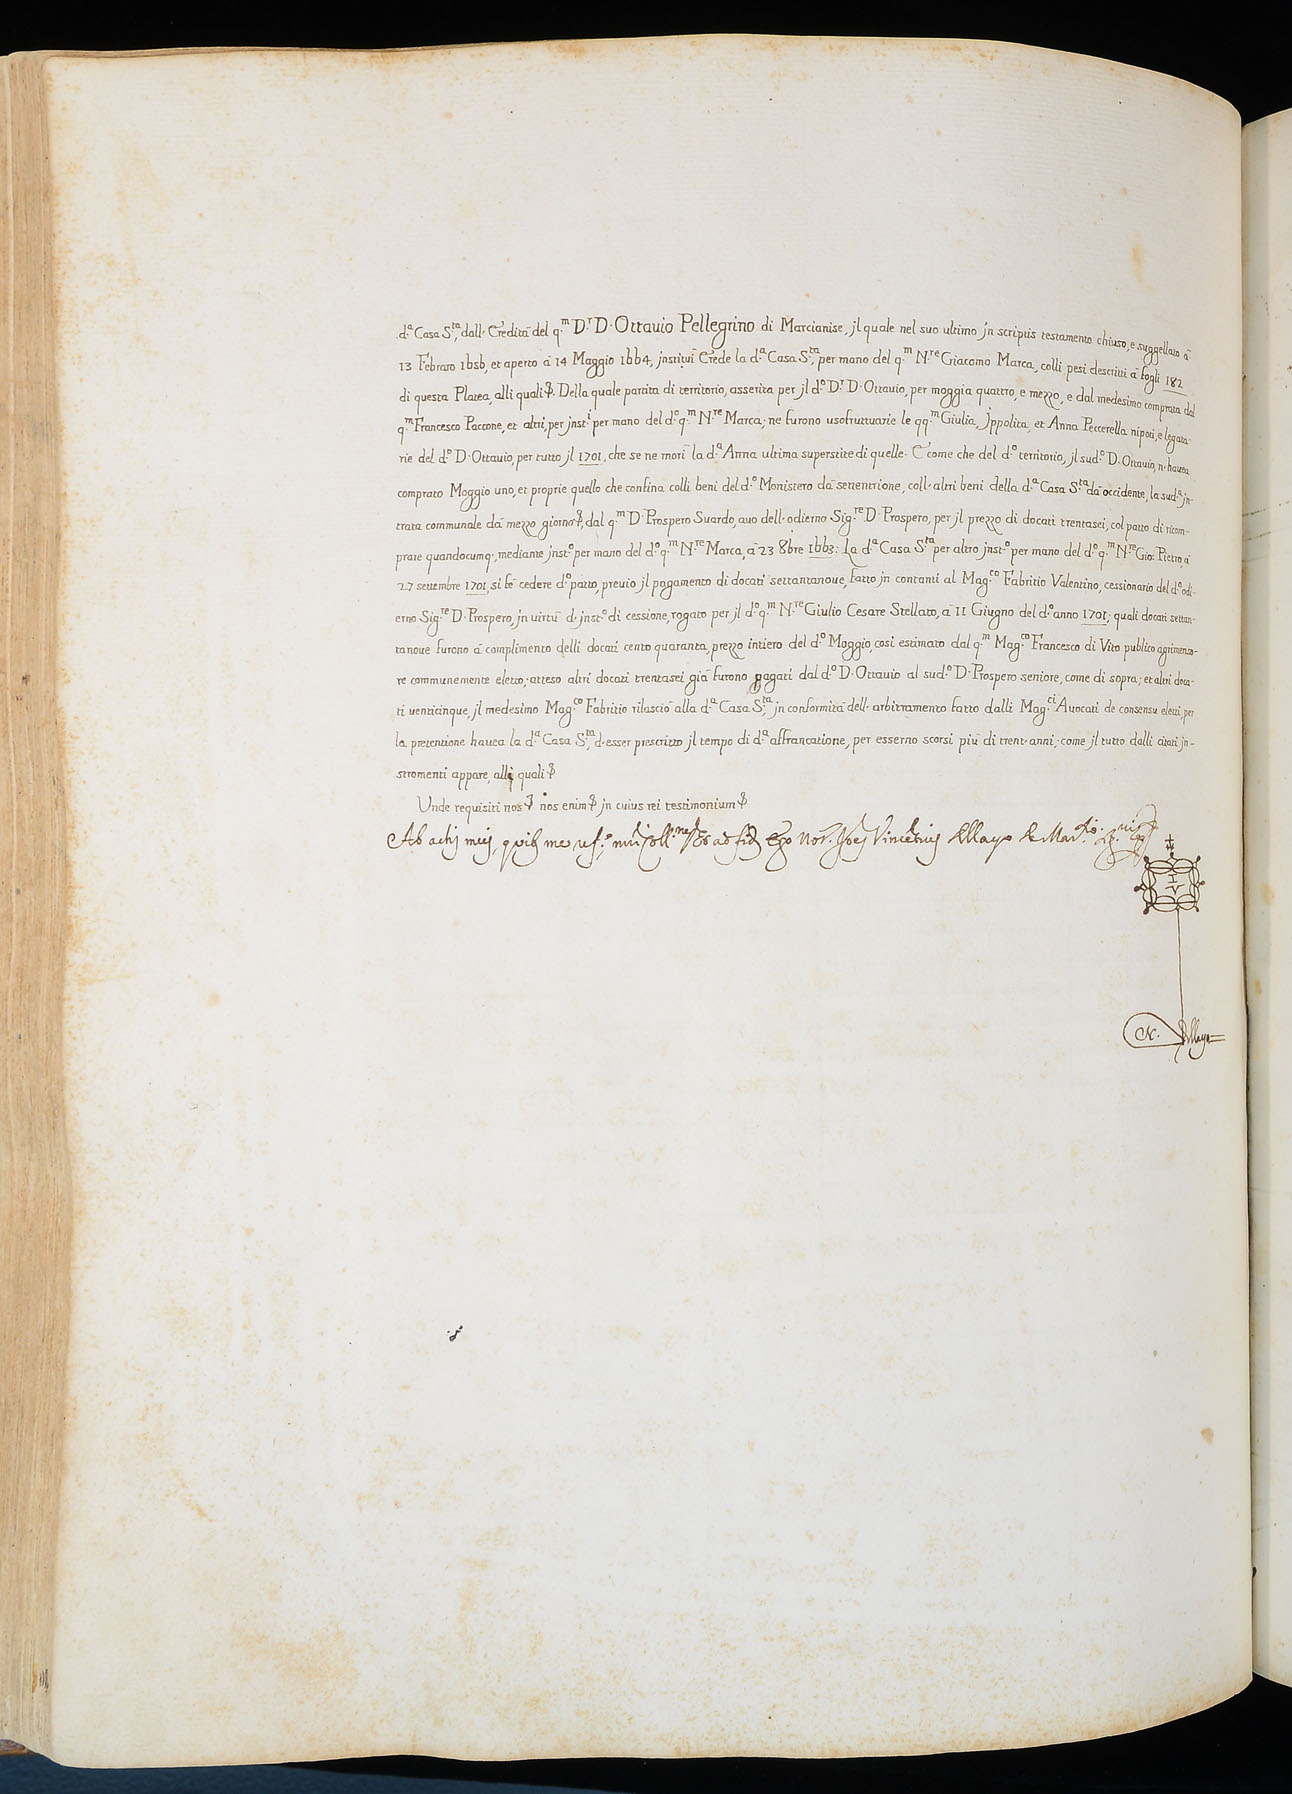 d.ª Casa S.ᵗᵃ, dall' Eredità del q.ᵐ D.ʳ D. Ottauio Pellegrino di Marcianise, jl quale nel suo ultimo jn scriptis testamento chiuso, e suggellato à
13 Febraro 1656, et aperto à 14 Maggio 1664, jnstituì Erede la d.ª Casa S.ᵗᵃ, per mano del q.ᵐ N.ʳᵉ Giacomo Marca, colli pesi descritti à fogli 182
di questa Platea, alli quali. Della quale partita di territorio, asserita per jl d.º D.ʳ D. Ottauio, per moggia quattro, e mezzo, e dal medesimo comprata dal
q.ᵐ Francesco Paccone, et altri, per jnst.ⁱ per mano del d.º q.ᵐ N.ʳᵉ Marca; ne furono usofruttuarie le qq.ᵐ Giulia, Jppolita, et Anna Peccerella nipoti, e legata-
rie del d.º D. Ottauio, per tutto jl 1701, che se ne morì la d.ª Anna ultima superstite di quelle. E come che del d.º territorio, jl sud.º D. Ottauio, n' hauea
comprato Moggio uno, et proprie quello che confina colli beni del d.º Monistero dà settentrione, coll' altri beni della d.ª Casa S.ᵗᵃ dà occidente, la sud.ª jn-
trata communale dà mezzo giorno, dal q.ᵐ D. Prospero Suardo, auo dell' odierno Sig.ʳᵉ D. Prospero, per jl prezzo di docati trentasei, col patto di ricom-
prare quandocumq;, mediante jnst.º per mano del d.º q.ᵐ N.ʳᵉ Marca, à 23 8bre 1663: La d.ª Casa S.ᵗᵃ per altro jnst.º per mano del d.º q.ᵐ N.ʳᵉ Gio: Pietro à
27 settembre 1701, si fè cedere d.º patto, preuio jl pagamento di docati settantanoue, fatto jn contanti al Mag.ᶜᵒ Fabritio Valentino, cessionario del d.º odi-
erno Sig.ʳᵉ D. Prospero, jn uirtù d' jnst.º di cessione, rogato per jl d.º q.ᵐ N.ʳᵉ Giulio Cesare Stellato, à 11 Giugno del d.º anno 1701; quali docati settan-
tanoue furono à complimento delli docati cento quaranta, prezzo intiero del d.º Moggio, così estimato dal q.ᵐ Mag.ᶜᵒ Francesco di Vito publico agrimenso-
re communemente eletto; atteso altri docati trentasei già furono pagati dal d.º D. Ottauio al sud.º D. Prospero seniore, come di sopra; et altri doca-
ti uenticinque, jl medesimo Mag.ᶜᵒ Fabritio rilasciò alla d.ª Casa S.ᵗᵃ, jn conformità dell' arbitramento fatto dalli Mag.ᶜⁱ Auocati de consensu eletti, per
la pretentione hauea la d.ª Casa S.ᵗᵃ, d' esser prescritto jl tempo di d.ª affrancatione, per esserno scorsi più di trent' anni; come jl tutto dalli citati jn-
stromenti appare, alli quali
Unde requisiti nos nos enim jn cuius rei testimonium
Ab actis meis, ego Not. Vincentius Dellayo de
I V
N. Dellayo